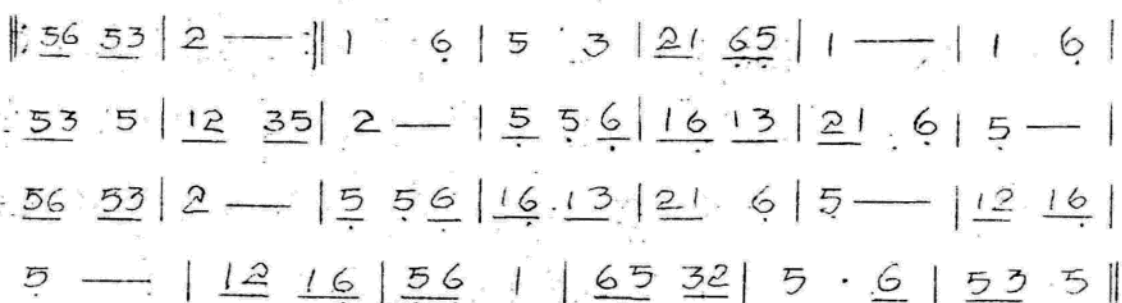 ‖: 56 53 | 2 — :‖ 1 6̣ | 5 3 | 21 6̣5̣ | 1 — | 1 6̣ |
53 5 | 12 35 | 2 — | 5̣ 5̣ 6̣ | 16̣ 13 | 21 6̣ | 5̣ — |
56 53 | 2 — | 5̣ 5̣ 6̣ | 16̣ 13 | 21 6̣ | 5̣ — | 12 16̣ |
5̣ — | 12 16̣ | 5̣6̣ 1 | 65 32 | 5 · 6 | 53 5 ‖